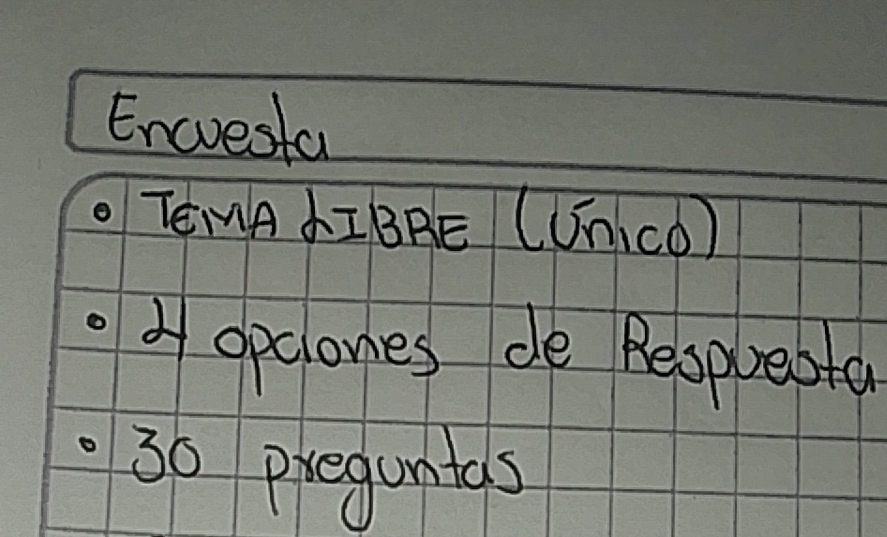 Encuesta
• TEMA LIBRE (Único)
• 4 opciones de Respuesta
• 30 preguntas